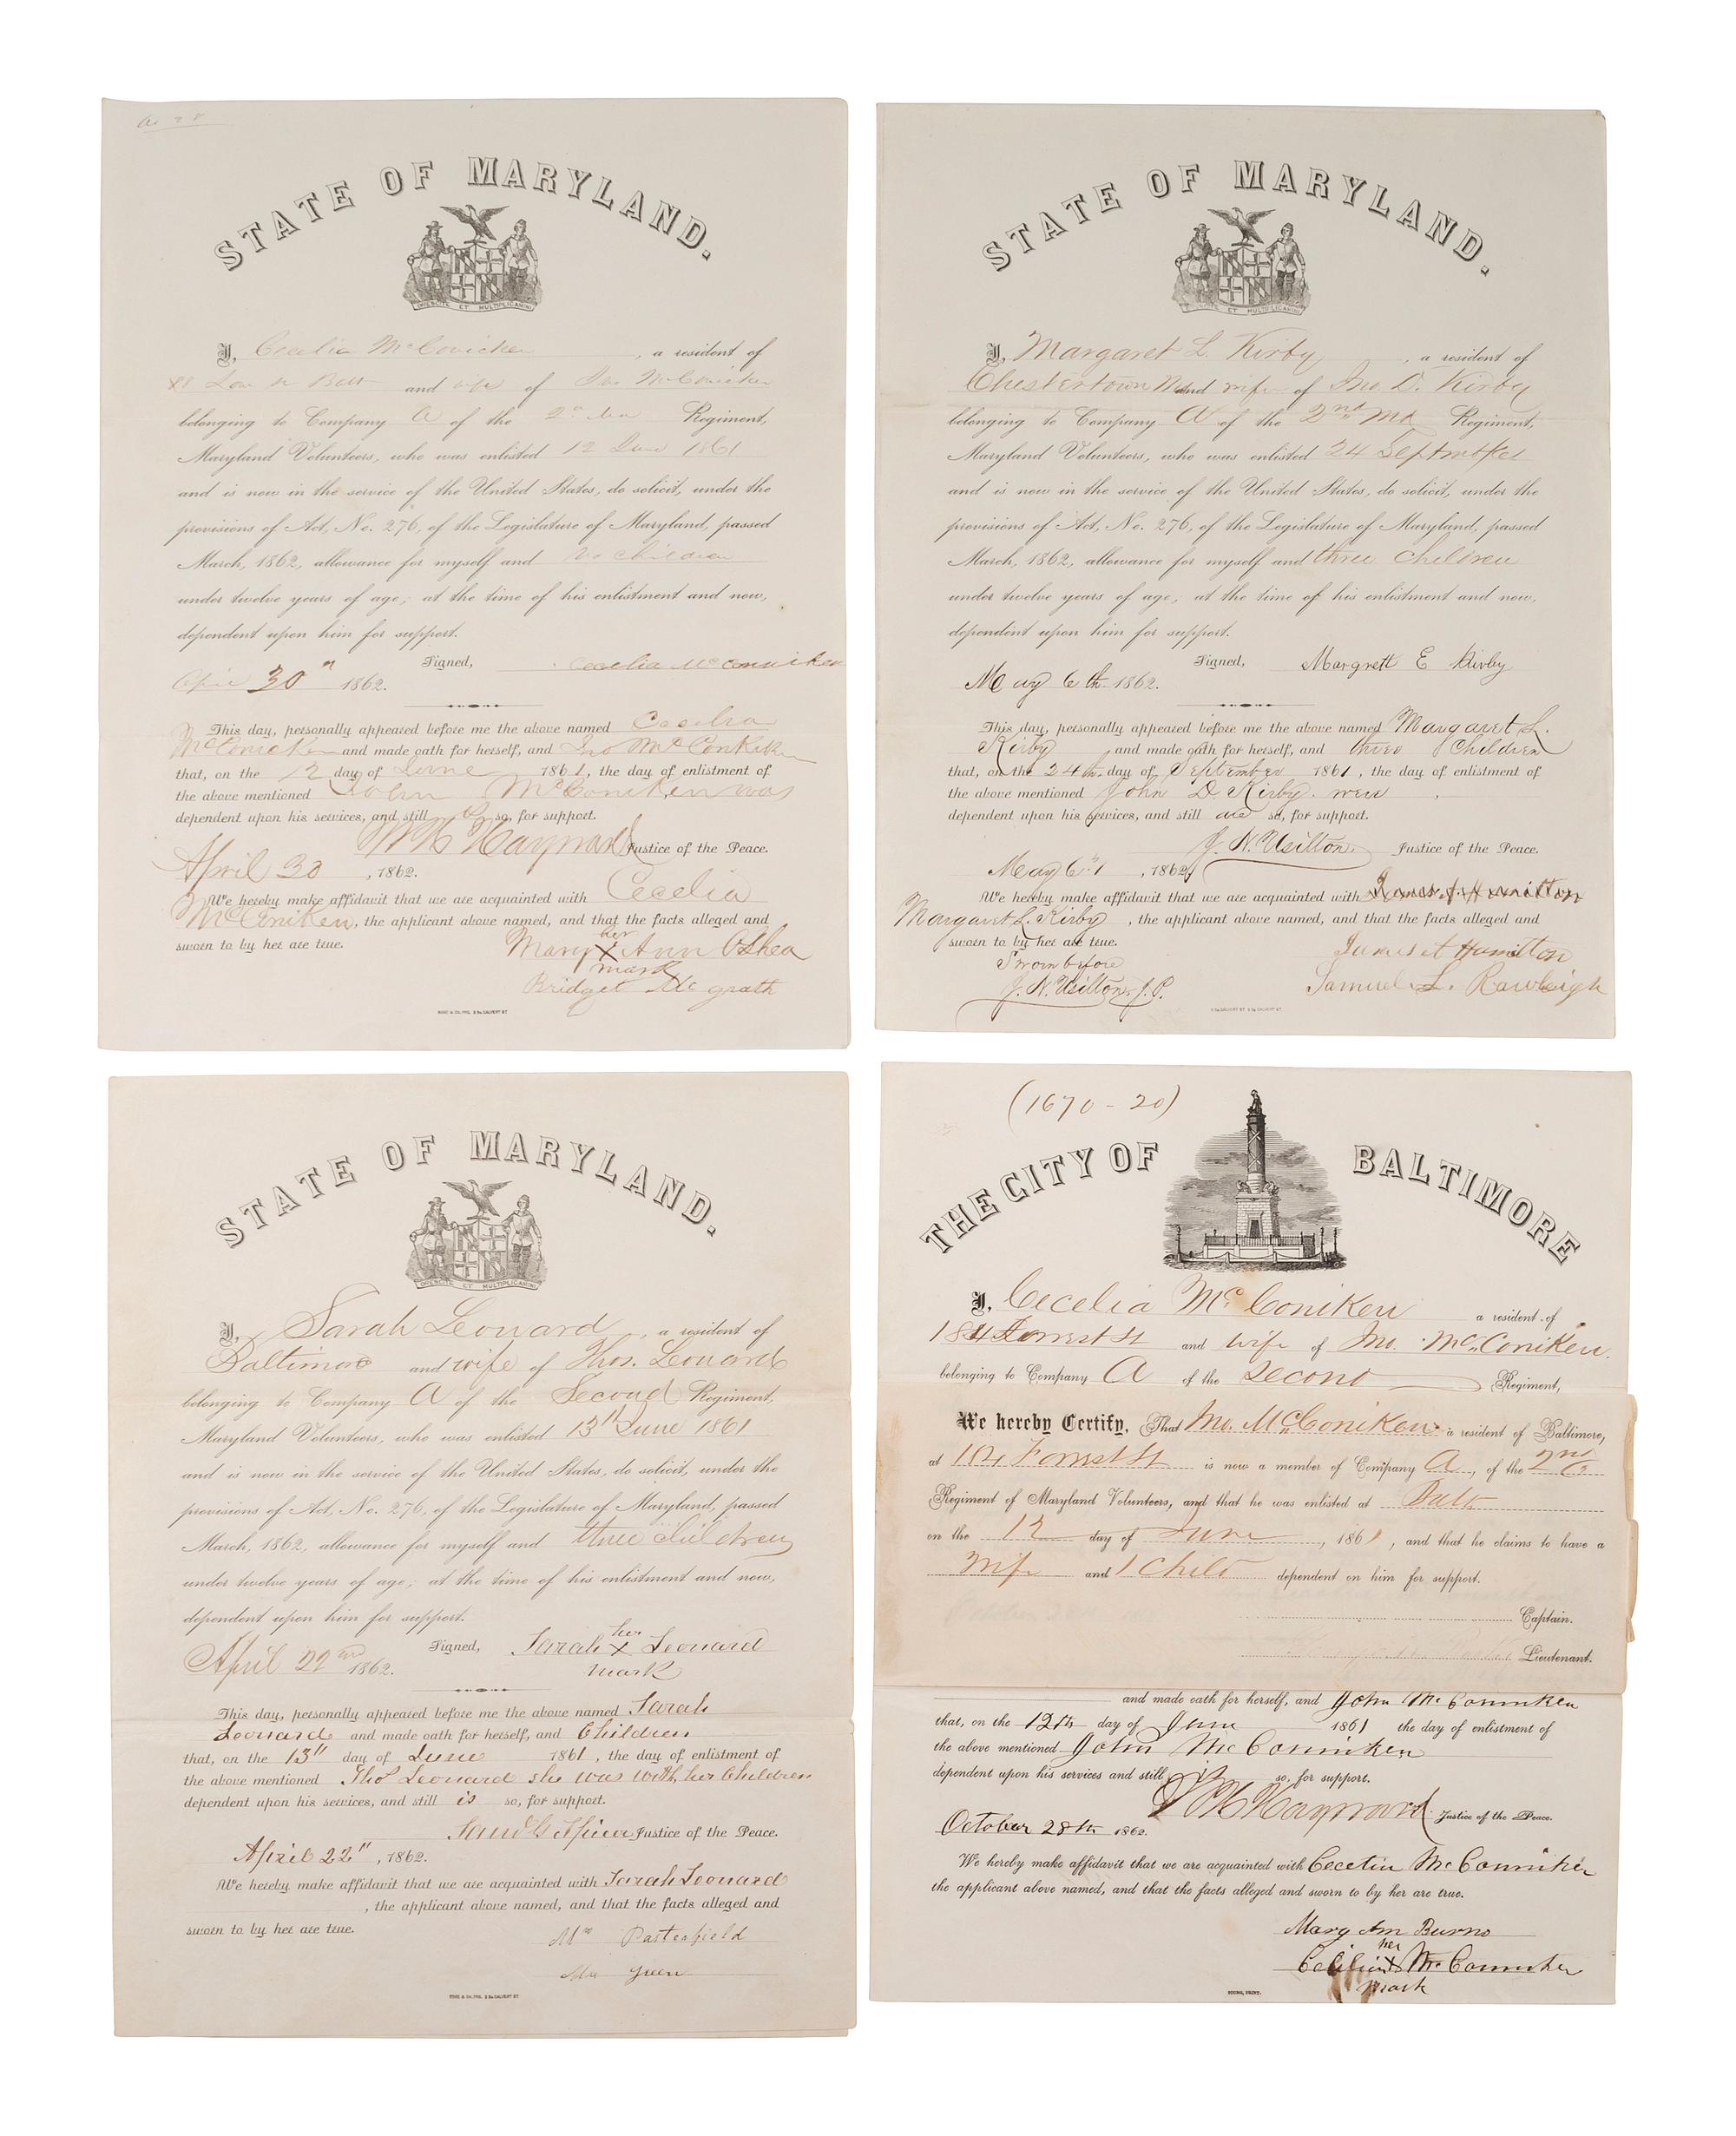 STATE OF MARYLAND.
CRESCITE ET MULTIPLICAMINI
I, Cecelia McConicken, a resident of
and wife of Jno McConicken
belonging to Company A of the 2nd Regiment,
Maryland Volunteers, who was enlisted 12 June 1861
and is now in the service of the United States, do solicit, under the
provisions of Act, No. 276, of the Legislature of Maryland, passed
March, 1862, allowance for myself and no children
under twelve years of age; at the time of his enlistment and now,
dependent upon him for support.
Signed, Cecelia McConniken
April 30th 1862.
This day, personally appeared before me the above named Cecelia
McConicken and made oath for herself, and Jno McConkiken
that, on the 12 day of June 1861, the day of enlistment of
the above mentioned John McConiken was
dependent upon his services, and still so, for support.
W H Hayward Justice of the Peace.
April 30, 1862.
We hereby make affidavit that we are acquainted with Cecelia
McConiken, the applicant above named, and that the facts alleged and
sworn to by her are true.
Mary her X mark Ann OShea
Bridget Mc grath
STATE OF MARYLAND.
CRESCITE ET MULTIPLICAMINI
I, Margaret L. Kirby, a resident of
Chestertown Md and wife of Jno. D. Kirby
belonging to Company A of the 2nd Md Regiment,
Maryland Volunteers, who was enlisted 24 September
and is now in the service of the United States, do solicit, under the
provisions of Act, No. 276, of the Legislature of Maryland, passed
March, 1862, allowance for myself and three children
under twelve years of age; at the time of his enlistment and now,
dependent upon him for support.
Signed, Margrett E Kirby
May 6th 1862.
This day, personally appeared before me the above named Margaret L.
Kirby, and made oath for herself, and three Children
that, on the 24th day of September 1861, the day of enlistment of
the above mentioned John D. Kirby were
dependent upon his services, and still are so, for support.
J. N. Usilton Justice of the Peace.
May 6th, 1862,
We hereby make affidavit that we are acquainted with James A Hamilton
Margaret L Kirby, the applicant above named, and that the facts alleged and
sworn to by her are true.
Sworn before
J. N. Usilton J. P.
James A Hamilton
Samuel L. Rawleigh
STATE OF MARYLAND.
CRESCITE ET MULTIPLICAMINI
I, Sarah Leonard, a resident of
Baltimore and wife of Thos. Leonard
belonging to Company A of the Second Regiment,
Maryland Volunteers, who was enlisted 13th June 1861
and is now in the service of the United States, do solicit, under the
provisions of Act, No. 276, of the Legislature of Maryland, passed
March, 1862, allowance for myself and three children
under twelve years of age; at the time of his enlistment and now,
dependent upon him for support.
Signed, Sarah her X mark Leonard
April 22nd 1862.
This day, personally appeared before me the above named Sarah
Leonard and made oath for herself, and Children
that, on the 13" day of June 1861, the day of enlistment of
the above mentioned Thos Leonard she was with her Children
dependent upon his services, and still is so, for support.
Justice of the Peace.
April 22", 1862.
We hereby make affidavit that we are acquainted with Sarah Leonard
, the applicant above named, and that the facts alleged and
sworn to by her are true.
Porterfield
Green
(1670-20)
THE CITY OF BALTIMORE
I, Cecelia McConiken a resident of
184 Forrest St and wife of Jno. McConiken.
belonging to Company A of the Second Regiment,
We hereby Certify, That Jno. McConiken a resident of Baltimore,
at 184 Forrest St is now a member of Company A, of the 2nd
Regiment of Maryland Volunteers, and that he was enlisted at Balto
on the 12 day of June, 1861, and that he claims to have a
Wife and 1 Child dependent on him for support.
Captain.
Lieutenant.
and made oath for herself, and John McConniken
that, on the 12th day of June 1861 the day of enlistment of
the above mentioned John McConniken
dependent upon his services and still is so, for support.
W H Hayward Justice of the Peace.
October 28th 1862.
We hereby make affidavit that we are acquainted with Cecelia McConniken
the applicant above named, and that the facts alleged and sworn to by her are true.
Mary Ann Burns
Cecilia her X mark McConniken